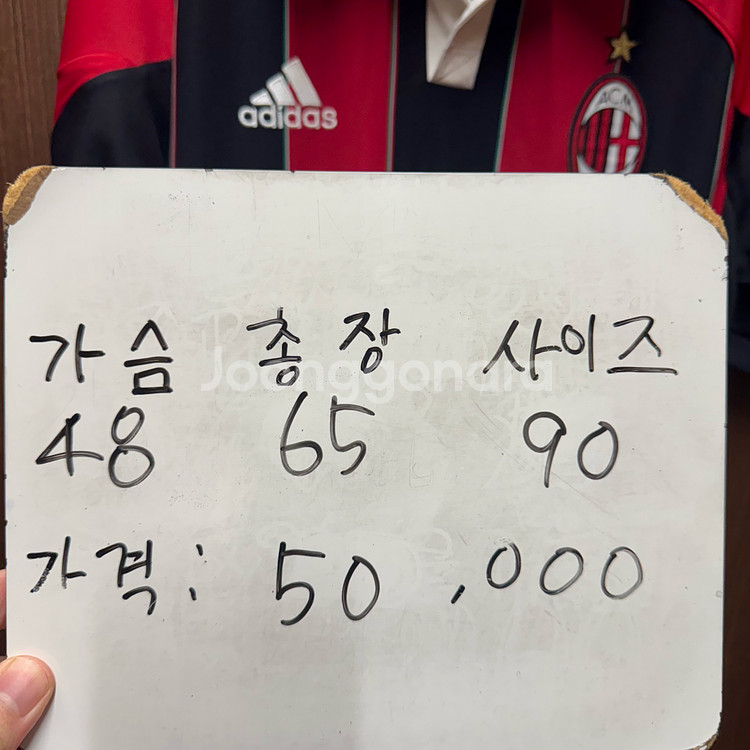 adidas
ACM
가슴 총장 사이즈
Joonggonara
48 65 90
가격: 50,000